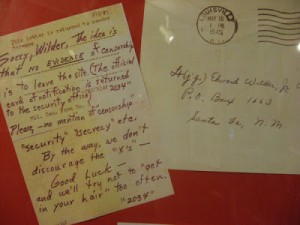 Sorry, Wilder, the idea is
that NO EVIDENCE of censorship
is to leave the site (the official
card of notification is returned
to the security office)
"2034"
Please, no mention of censorship
"security" secrecy etc.
By the way, we don't
discourage the "X's" —
Good Luck —
and we'll try not to "get
in your hair" too often.
"2034"
LOUISVILLE
1945
Edward Wilder, Jr.
P.O. Box 1663
Santa Fe, N. M.